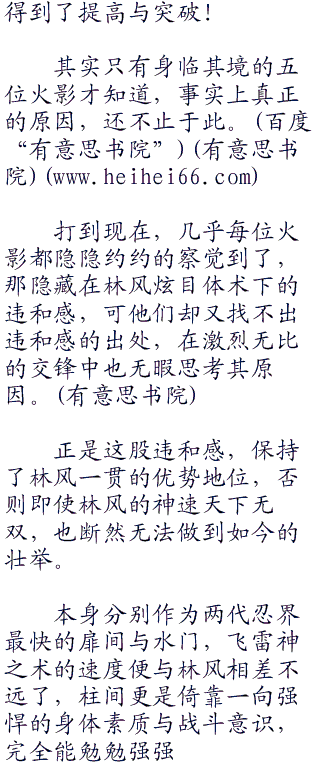 得到了提高与突破！
其实只有身临其境的五
位火影才知道，事实上真正
的原因，还不止于此。（百度
“有意思书院”）（有意思书
院）(www.heihei66.com)
打到现在，几乎每位火
影都隐隐约约的察觉到了，
那隐藏在林风炫目体术下的
违和感，可他们却又找不出
违和感的出处，在激烈无比
的交锋中也无暇思考其原
因。（有意思书院）
正是这股违和感，保持
了林风一贯的优势地位，否
则即使林风的神速天下无
双，也断然无法做到如今的
壮举。
本身分别作为两代忍界
最快的扉间与水门，飞雷神
之术的速度便与林风相差不
远了，柱间更是倚靠一向强
悍的身体素质与战斗意识，
完全能勉勉强强